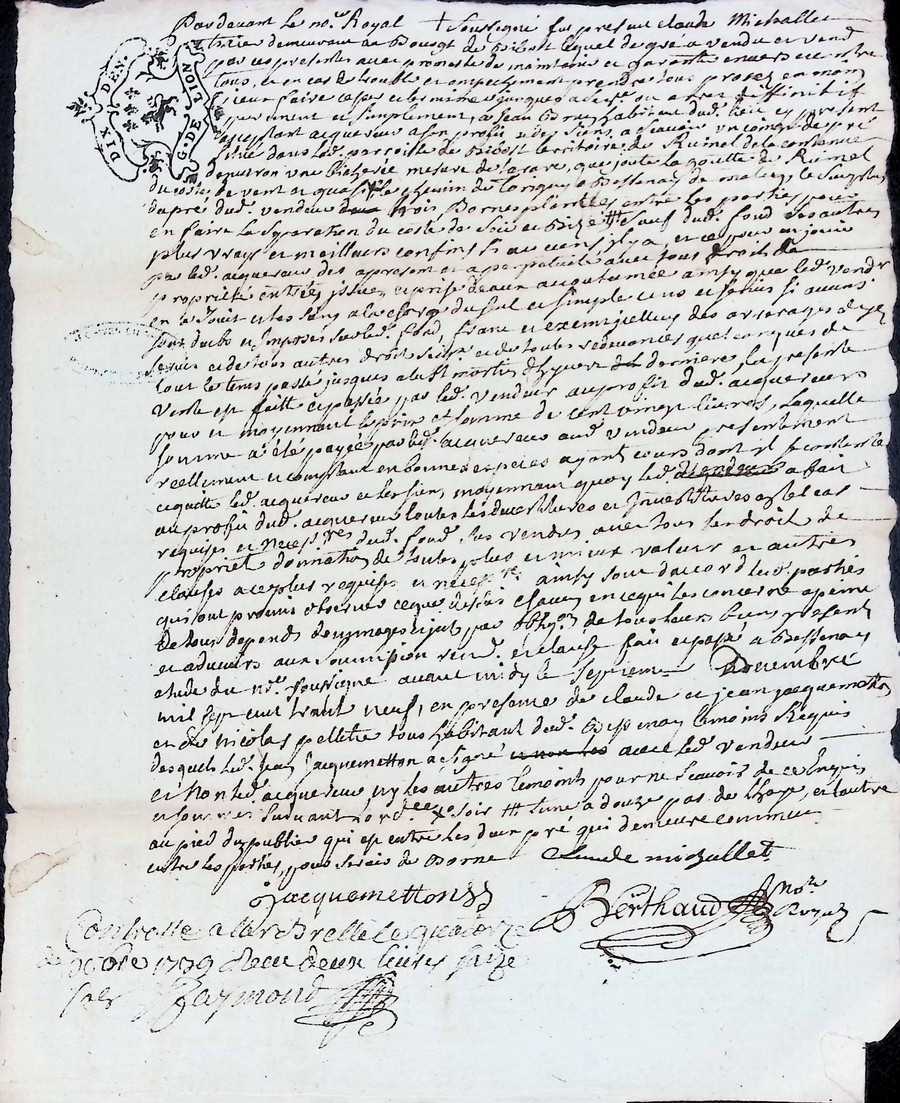 Pardevant le no.re Royal + soussigné fut present claude Michallet
demeurant au Bourgt de Bibost lequel de gré a vendu et vend
par ces presentes avec promesse de maintenir et garantir envers et contre
tous, et en cas de trouble et empechement prendre
purement et simplement, a Jean habitant dud. lieu icy present
et acceptant acquereur a son profit et des siens, a scavoir un coing de pré
situé dans lad. parroisse de Bibost territoire de Ruinel de la contenue
d'environ une bicherée mesure de larare, que joute la goutte de Ruinel
du costé de vent et quasi le chemin de a Bessenay de matin, le surplus
du pré dud. vendeur trois Bornes plantées entre les parties pour
en faire la separation du costé de soir et Bize ## sauf dud. fond ses autres
plus vrays et meilleurs confins si aucuns il y a, et ce pour en jouir
par led. acquereur des apresent et a perpetuité avec tous droit de
proprieté entrées, issues, et prise deaux acoutumée ainsy que led. vendeur
en a jouit et les siens a la charge du seul et simple cens et servis si aucuns
sont dubs et imposés sur led. fond, franc et exempt des arrerages de
servis et de tous autres droit et de toutes redevances quelconques de
tout le temps passé jusques a la st martin d'hyver derniere, la presente
vente est faitte et passée par led. vendeur au profit dud. acquereur
pour et moyennant le prix et somme de cent vingt livres, laquelle
somme a été payée par led. acquereur aud. vendeur presentement
reellement et comptant en bonnes especes ayant cours dont il se contente
et quitte led. acquereur et les siens, moyennant quoy led. vendeur a fait
au profit dud. acquereur toutes les devestitures et Investitures a tel cas
requises et necess.res dud. fond, les vendus, avec tous les droit de
propriet donnation de toutes plus et mieux values et autres
clauses a ce plus requises et necess.re ainsy sont d'accord lesd. parties
qui ont promis observer ce que dessus chacun en ce qui les concerne a peine
de tous depends dommages interest par obligon de tous leurs biens presents
et advenirs aux soumission renon. et clauses fait et passé a Bessenay
etude du no.re soussigné avant midy le septieme Decembre
mil sept cent trente neuf, en presence de claude et jean jacquemetton
et de nicolas pelletie tous habitant dud. Bessenay temoins Requis
desquels led. jean Jacquemetton a signé avec led. vendeur
et Non led. acquereur ny les autres temoints pour ne scavoir de ce Enquis
et sommés suivant lord.ce soir ## l'une a douze pas de lhaye, et l'autre
au pied du peuplier qui est entre les deux pré qui demeure commun
entre les parties, pour servir de Borne claude michallet
Jacquemetton
Berthaud no.re Royal
Controllé a larbrelle le quatorze
Xbre 1739 Receu deux livres seize
sols Raymond
G. DE LION
DIX DEN.